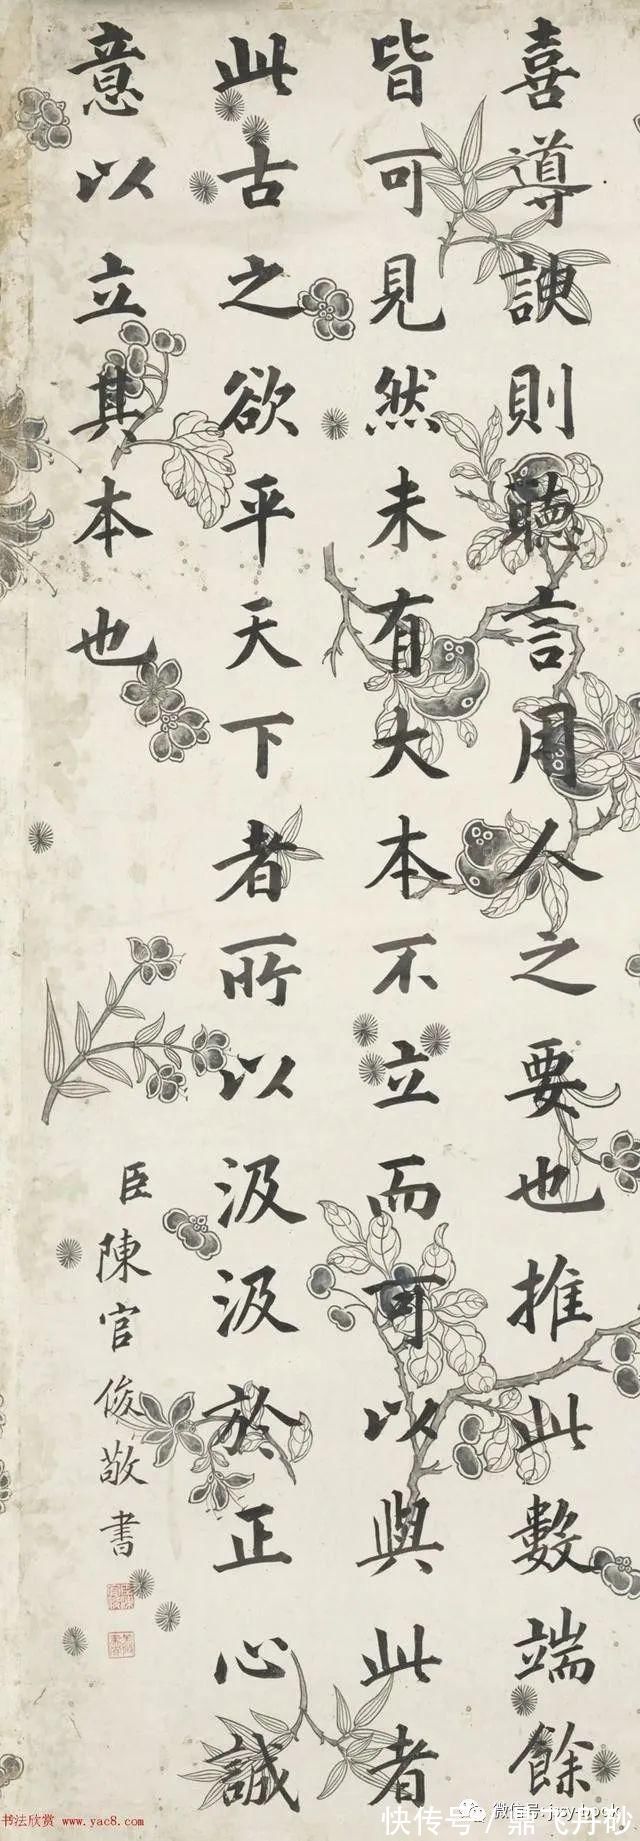 喜導諛則聽言用人之要也推此數端餘
皆可見然未有大本不立而可以與此者
此古之欲平天下者所以汲汲於正心誠
意以立其本也
臣陳官俊敬書
书法欣赏 www.yac8.com
微信号:
快传号 / 鼎飞丹砂